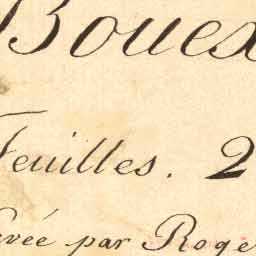 Bouex
Feuilles. 2
vée par Roge